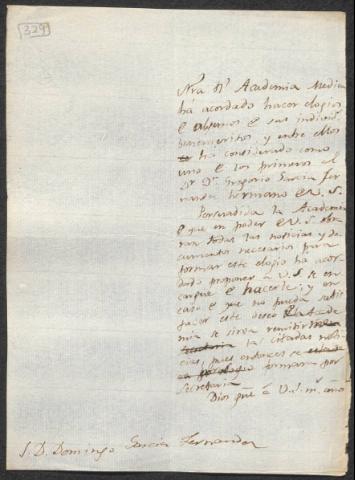 329
Nra Rl Academia Medica
ha acordado hacer elogios
á algunos de sus individ.s
benemeritos, y entre ellos
ha considerado como
uno de los primeros al
Dr. Dn. Gregorio Garcia Fer
nandez hermano de V.S.
Persuadida la Academia
de que en poder de V.S. obra
ran todas las noticias y do
cumentos necesarios para
formar este elogio ha acor
dado proponer a V.S. se en
cargue de hacerle; y en
caso de que no pueda
hacer este deseo de la Acade
mia se sirva remitir
las citadas noti
cias, pues entonces se
formara por
Secretaria
Dios gue. á V.S. ms. años
S. D. Domingo Garcia Fernandez